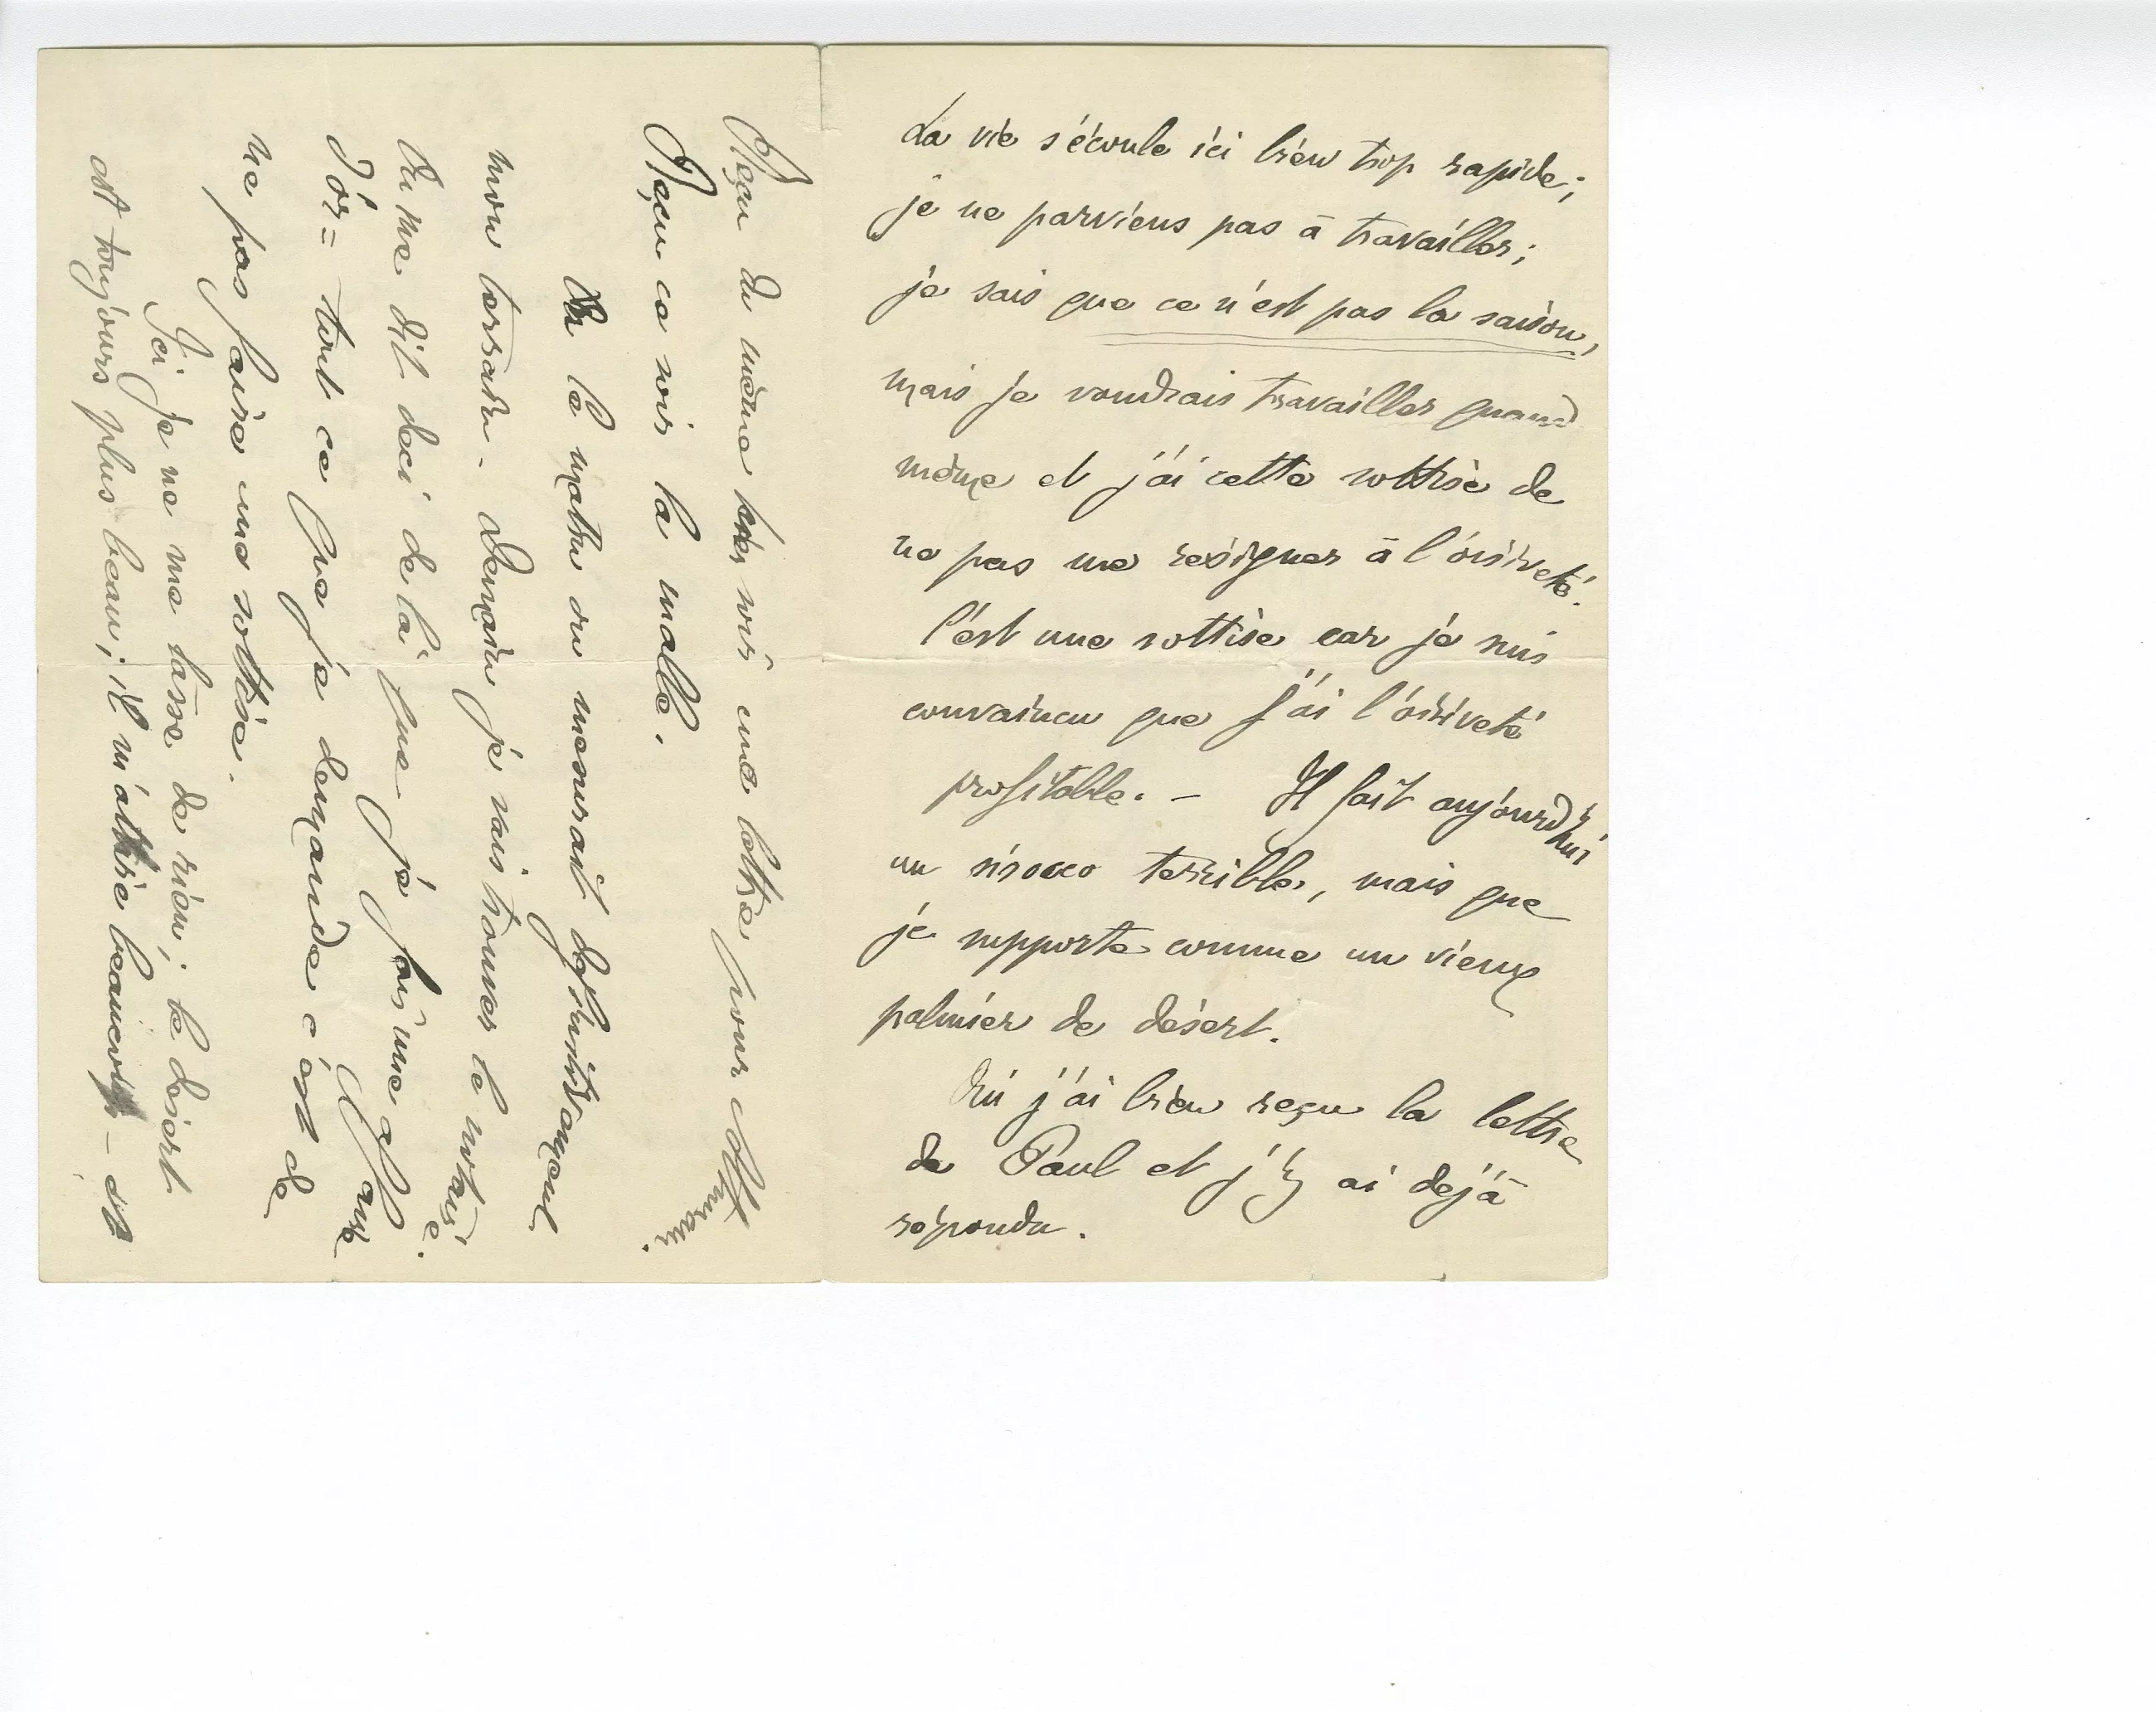 La vie s'écoule ici bien trop rapide;
je ne parviens pas à travailler;
je sais que ce n'est pas la saison,
mais je voudrais travailler quand
même et j'ai cette sottise de
ne pas me résigner à l'oisiveté.
C'est une sottise car je suis
convaincu que j'ai l'oisiveté
profitable. - Il fait aujourd'hui
un siroco terrible, mais que
je supporte comme un vieux
palmier de désert.
Oui j'ai bien reçu la lettre
de Paul et j'y ai déjà
répondu.
Reçu du même soir une lettre pour
Reçu ce soir la malle.
Ce matin on mesurait définitivement
mon terrain. Demain je vais trouver le notaire.
On me dit deci de là que je fais une aff.
d'or = tout ce que je demande c'est de
ne pas faire une sottise.
Ici je ne me lasse de rien; le désert
est toujours plus beau; il m'attire beaucoup - et